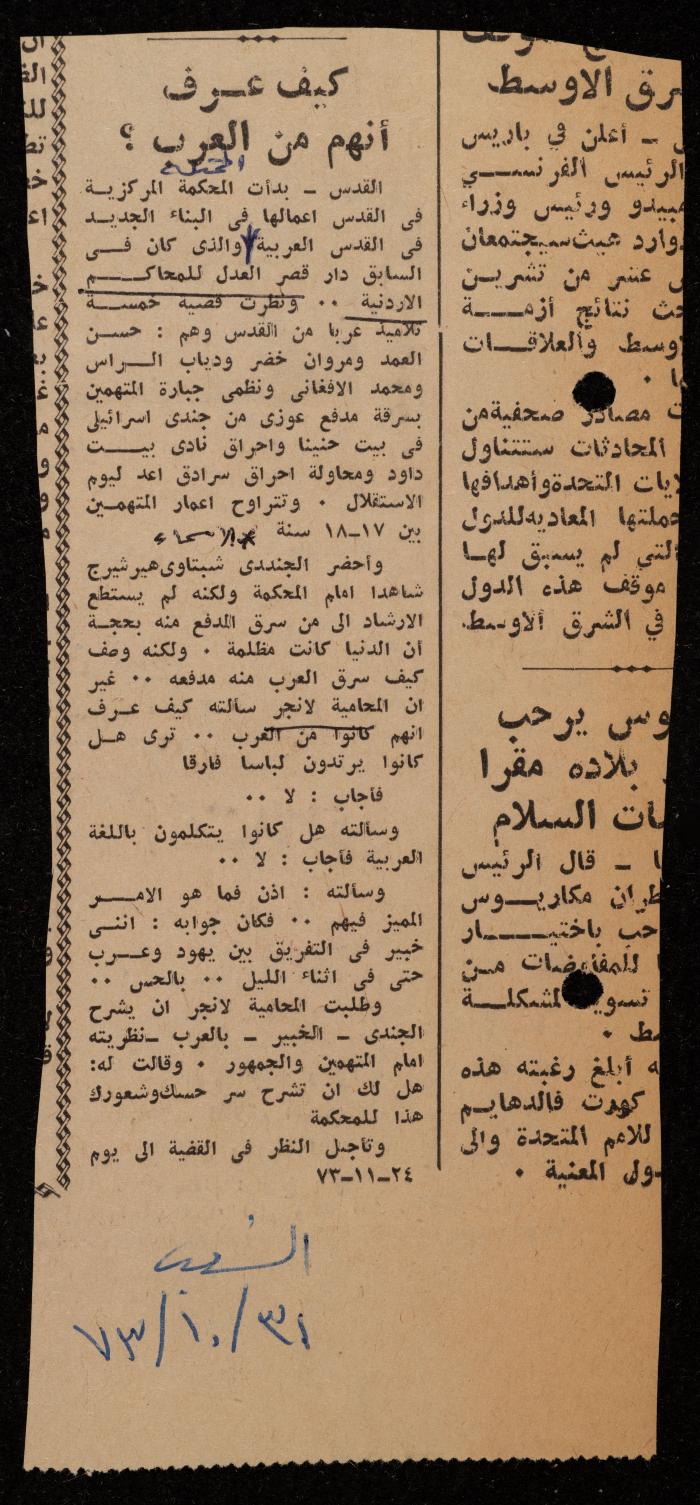 كيف عـرف
أنهم من العرب ؟
المحتلة
القدس ــ بدأت المحكمة المركزية
فى القدس اعمالها فى البناء الجديد
فى القدس العربية والذى كان فـى
السابق دار قصر العدل للمحاكـــم
الاردنية ٠٠ ونظرت قضية خمسـة
تلاميذ عربا من القدس وهم : حسـن
العمد ومروان خضر ودياب الـراس
ومحمد الافغانى ونظمى جبارة المتهمين
بسرقة مدفع عوزى من جندى اسرائيلى
فى بيت حنينا واحراق نادى بيـت
داود ومحاولة احراق سرادق اعد ليوم
الاستقلال ٠ وتتراوح اعمار المتهمـين
بين ١٧ــ١٨ سنة
وأحضر الجنددى شبتاوى هيرشيرج
شاهدا امام المحكمة ولكنه لم يستطع
الارشاد الى من سرق المدفع منه بحجـة
أن الدنيا كانت مظلمة ٠ ولكنه وصف
كيف سرق العرب منه مدفعه ٠٠ غير
ان المحامية لانجر سألته كيف عـرف
انهم كانوا من العرب ٠٠ ترى هـل
كانوا يرتدون لباسا فارقا
فأجاب : لا ٠٠
وسألته هل كانوا يتكلمون باللغة
العربية فأجاب : لا ٠٠
وسألته : اذن فما هو الامـــر
المميز فيهم ٠٠ فكان جوابه : اننـى
خبير فى التفريق بين يهود وعـرب
حتى فى اثناء الليل ٠٠ بالحس ٠٠
وطلبت المحامية لانجر ان يشرح
الجندى ــ الخبير ــ بالعرب ــنظريته
امام المتهمين والجمهور ٠ وقالت له:
هل لك ان تشرح سر حسك وشعورك
هذا للمحكمة
وتأجل النظر فى القضية الى يوم
٢٤ــ١١ــ٧٣
الشعب
٧٣/١٠/٣١
ـرق الاوسط
ــ أعلن في باريس
الرئيس الفرنســي
ـمبيدو ورئيس وزراء
ـدوارد هيث سيجتمعان
عشر من تشريـن
ـحث نتائج أزمــة
ـاوسط والعلاقـات
مصادر صحفية من
المحادثات ستتناول
ـلايات التحدة وأهدافها
حملتها المعاديه للدول
التي لم يسبق لهـا
موقف هذه الدول
في الشرق الاوسط.
ـوس يرحب
بلاده مقرا
ـات السلام
ــ قال الرئيس
ـطران مكاريـوس
ـحب باختيـــار
للمفاوضات مـن
تسوية لمشكلــة
ـسط ٠
أبلغ رغبته هذه
كورت فالدهايـم
للامم المتحدة والى
ـدول المعنية ٠